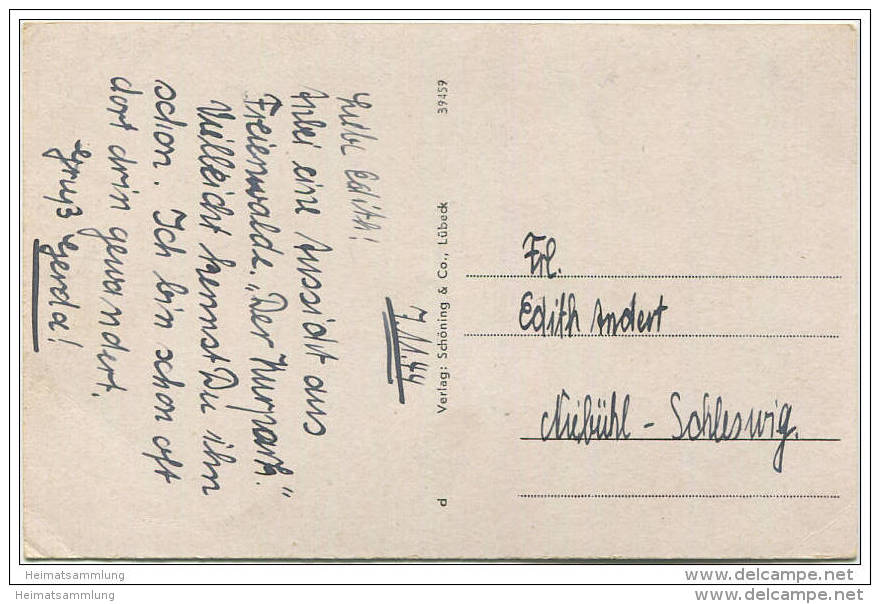 7.11.44
Liebe Edith!
Anbei eine Ansicht aus
Freienwalde. „Der Kurpark."
Vielleicht kennst Du ihn
schon. Ich bin schon oft
dort drin gewandert.
Gruß Gerda!
39459
Verlag: Schöning & Co., Lübeck
d
Frl.
Edith Andert
Niebühl - Schleswig.
Heimatsammlung
Heimatsammlung
www.delcampe.net
www.delcampe.net